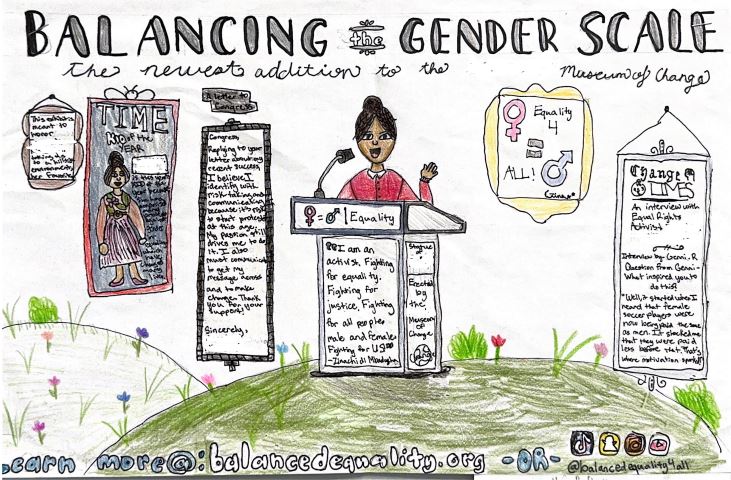 BALANCING the GENDER SCALE
the newest addition to the Museum of Change
This exhibit is
meant to
honor
TIME
KID of the
YEAR
A letter to
Congress
Congress,
Replying to your
letter about my
recent success,
I believe I
identify with
risk-taking and
communicating
because it's risky
to start protests
at this age.
My passion still
drives me to do
it. I also
must communicate
to get my
message across
and to make
change. Thank
you for your
support!
Sincerely,
♀=♂ | Equality
"I am an
activist. Fighting
for equality.
Fighting for
justice, Fighting
for all people
male and female.
Fighting for US"
Statue
of
Erected
by
the
Museum
of
Change
Equality
4
=
ALL!
Change
TIMES
An interview with
Equal Rights
Activist
Interview by: Genni. R
Question from Genni-
What inspired you
to do this?
"Well, it started when I
heard that female
soccer players were
now being paid the same
as men. It shocked me
that they were paid
less before that. That's
where motivation sparked"
Learn more@: balancedequality.org -OR-
@balancedequality4all